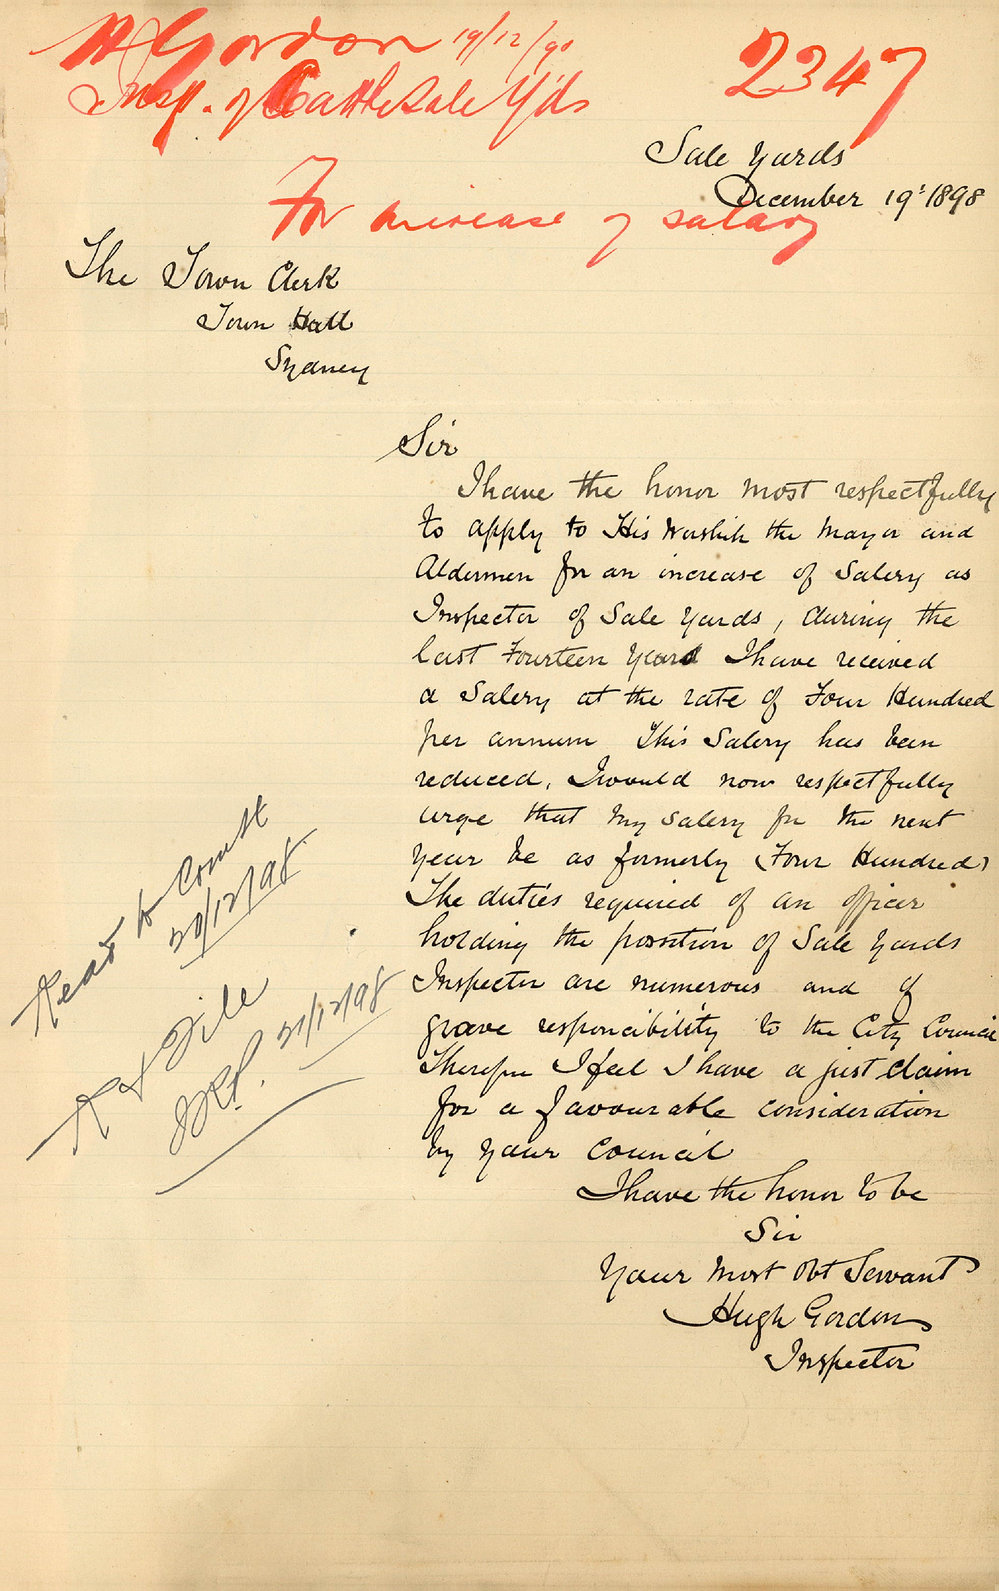 H Gordon 19/12/98
Insp. of Cattle Sale Y'ds
2347
For increase of salary
Sale Yards
December 19' 1898
The Town Clerk
Town Hall
Sydney
Sir
I have the honor most respectfully
to apply to His Worship the Mayor and
Aldermen for an increase of Salery as
Inspector of Sale Yards, during the
last Fourteen Years I have received
a Salery at the rate of Four Hundred
per annum This Salery has been
reduced. I would now respectfully
urge that my Salery for the next
year be as formerly (Four Hundred)
The duties required of an officer
holding the possition of Sale Yards
Inspector are numerous and of
grave responcibility to the City Council
Therefore I feel I have a just claim
for a favourable consideration
by your Council
I have the honor to be
Sir
Your Most Obt Servant
Hugh Gordon
Inspector
Read to Comtt
20/12/98
File
21/12/98